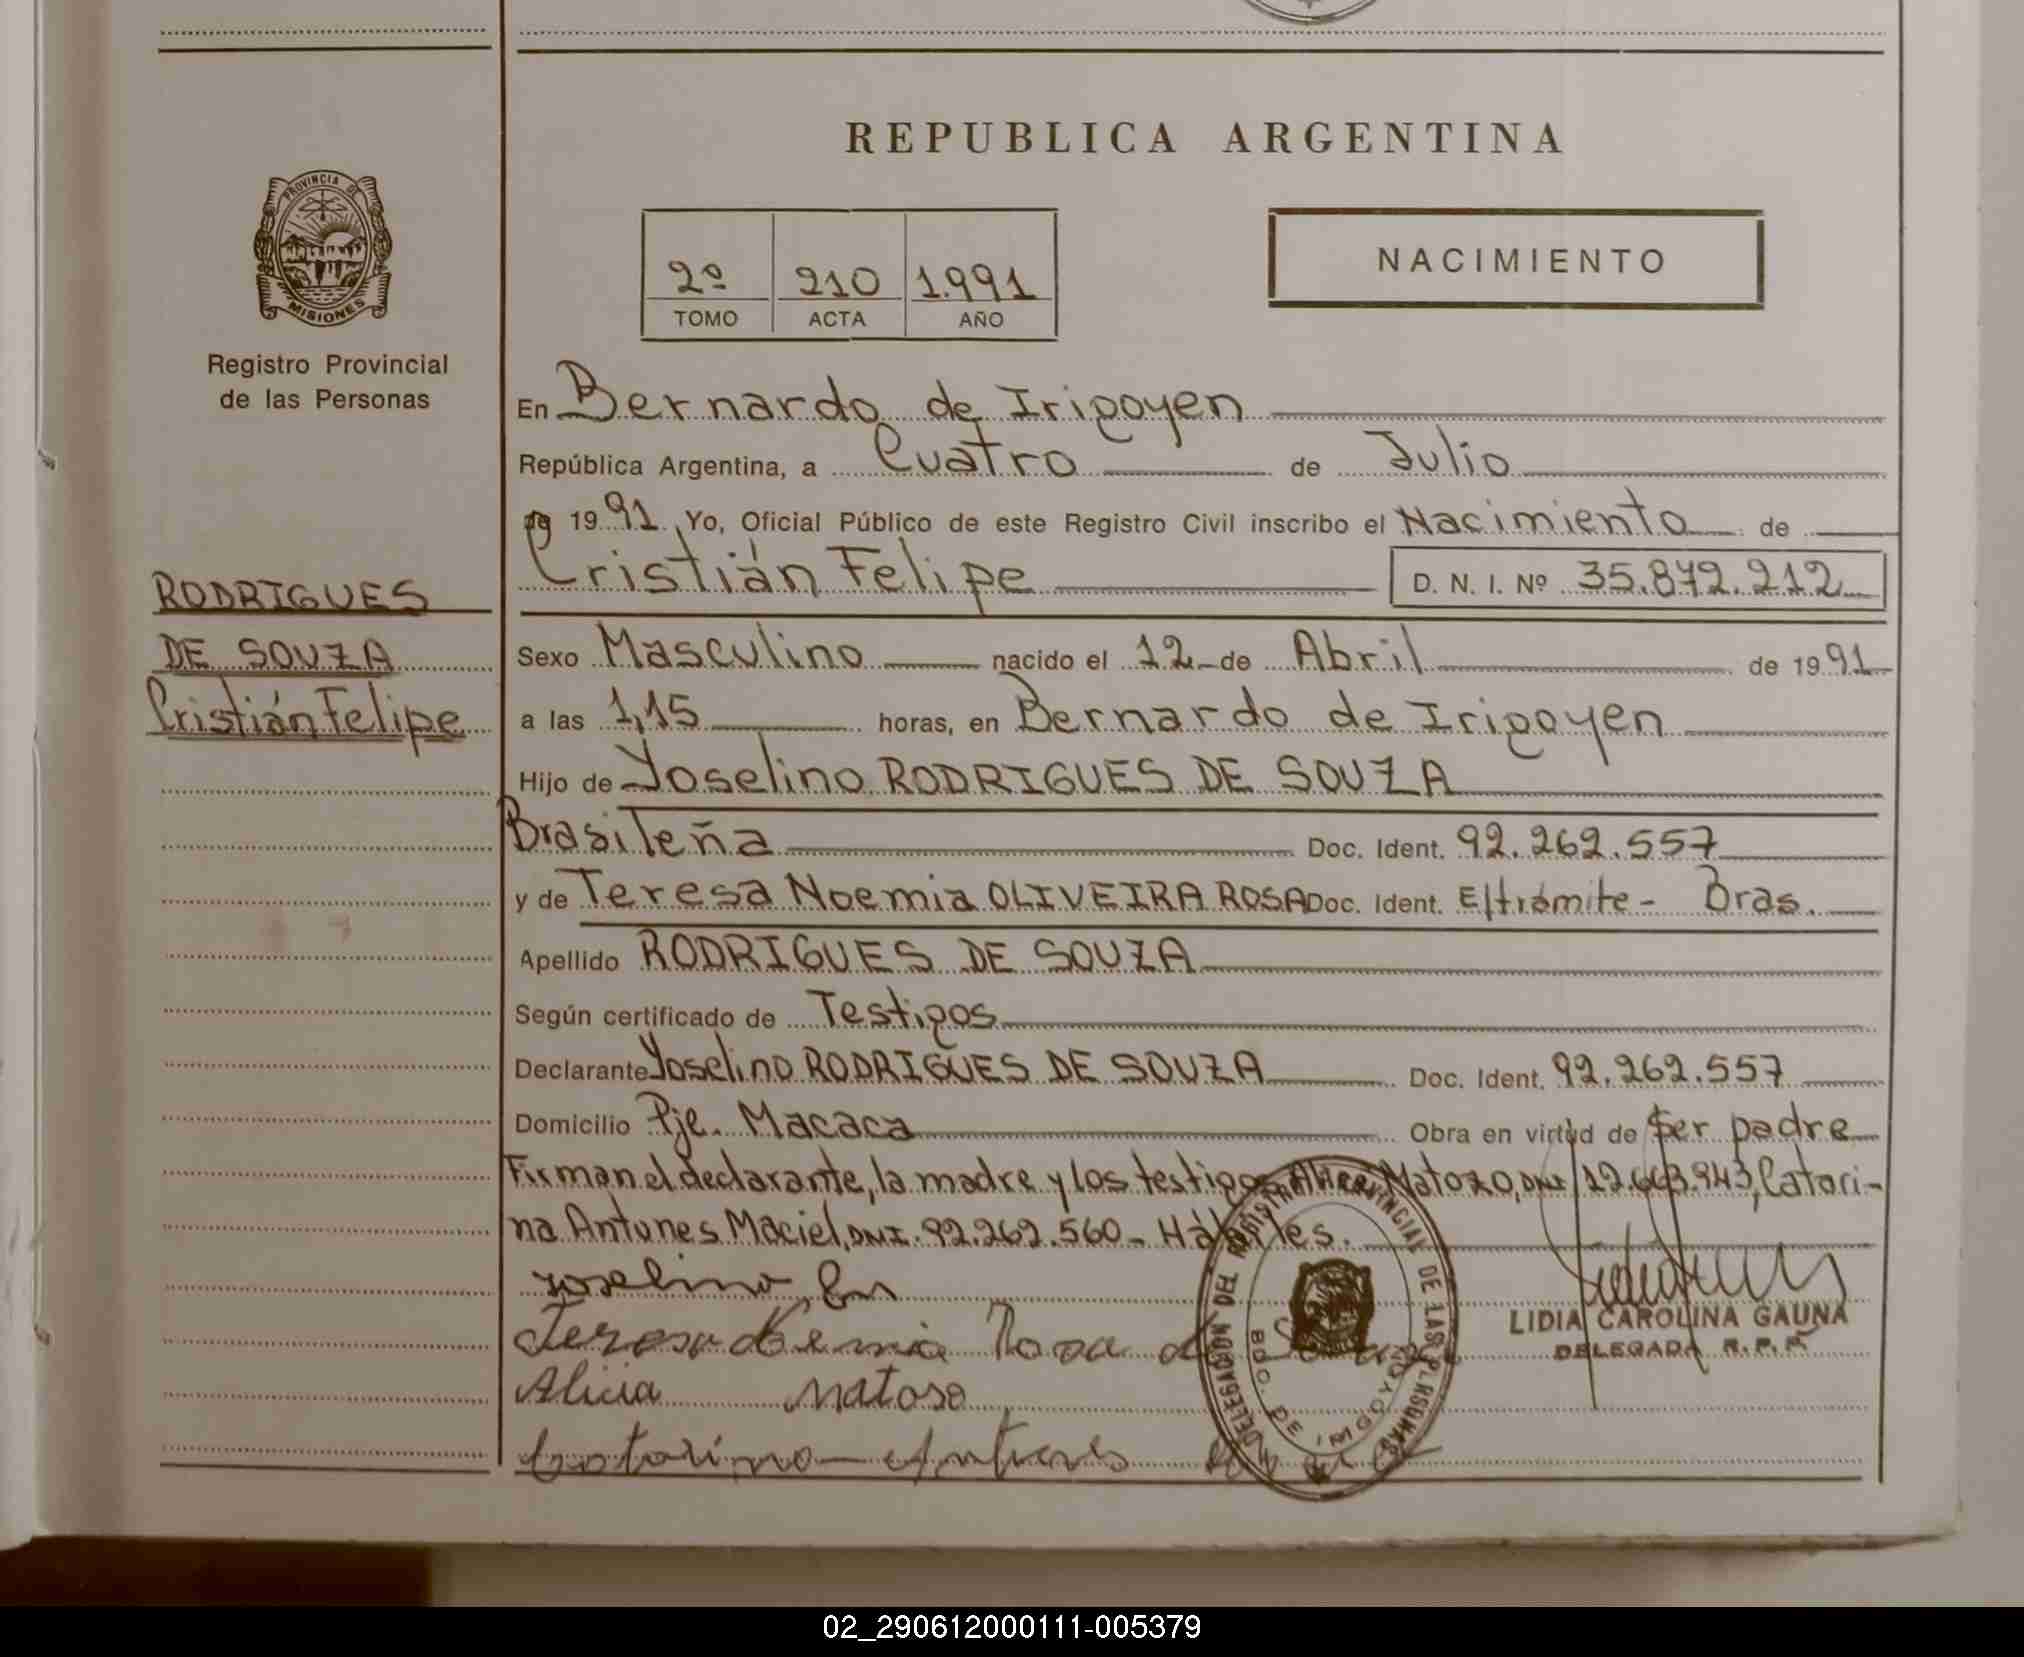 REPUBLICA ARGENTINA
PROVINCIA DE
MISIONES
Registro Provincial
de las Personas
2º 210 1.991
TOMO ACTA AÑO
NACIMIENTO
En Bernardo de Irigoyen
República Argentina, a Cuatro de Julio
de 1991. Yo, Oficial Público de este Registro Civil inscribo el Nacimiento de
Cristián Felipe D. N. I. Nº 35.872.212
RODRIGUES
DE SOUZA
Cristián Felipe
Sexo Masculino nacido el 12 de Abril de 1991
a las 1,15 horas, en Bernardo de Irigoyen
Hijo de Yoselino RODRIGUES DE SOUZA
Brasileña Doc. Ident. 92.262.557
y de Teresa Noemia OLIVEIRA ROSA Doc. Ident. E/trámite - Bras.
Apellido RODRIGUES DE SOUZA
Según certificado de Testigos
Declarante Yoselino RODRIGUES DE SOUZA Doc. Ident. 92.262.557
Domicilio Pje. Macaca Obra en virtud de Ser padre
Firman el declarante, la madre y los testigos Matozo, DNI 12.663.943, Catori-
na Antunes Maciel, DNI. 92.262.560 - Hábiles.
Teresa Rosa de
Alicia Matoso
DELEGACION DEL REGISTRO PROVINCIAL DE LAS PERSONAS
BDO. DE IRIGOYEN
LIDIA CAROLINA GAUNA
DELEGADA R.P.P.
02_290612000111-005379